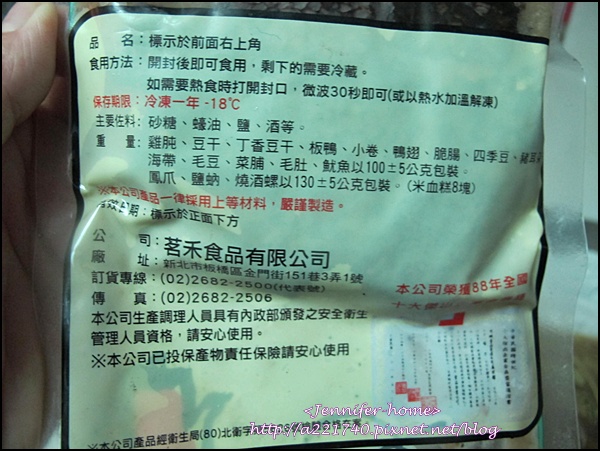 品　　名：標示於前面右上角
食用方法：開封後即可食用，剩下的需要冷藏。
如需要熟食時打開封口，微波30秒即可(或以熱水加溫解凍)
保存期限：冷凍一年 -18℃
主要佐料：砂糖、蠔油、鹽、酒等。
重　　量：雞肫、豆干、丁香豆干、板鴨、小卷、鴨翅、脆腸、四季豆、豬耳
海帶、毛豆、菜脯、毛肚、魷魚以100±5公克包裝。
鳳爪、鹽蚋、燒酒螺以130±5公克包裝。(米血糕8塊)
※本公司產品一律採用上等材料，嚴謹製造。
有效日期：標示於正面下方
公　　司：茗禾食品有限公司
廠　　址：新北市板橋區金門街151巷3弄1號
訂貨專線：(02)2682-2500(代表號)
傳　　真：(02)2682-2506
本公司榮獲88年全國
十大傑
本公司生產調理人員具有內政部頒發之安全衛生
管理人員資格，請安心使用。
※本公司已投保產物責任保險請安心使用
※本公司產品經衛生局(80)北衛字
<Jennifer home>
http://a221740.pixnet.net/blog